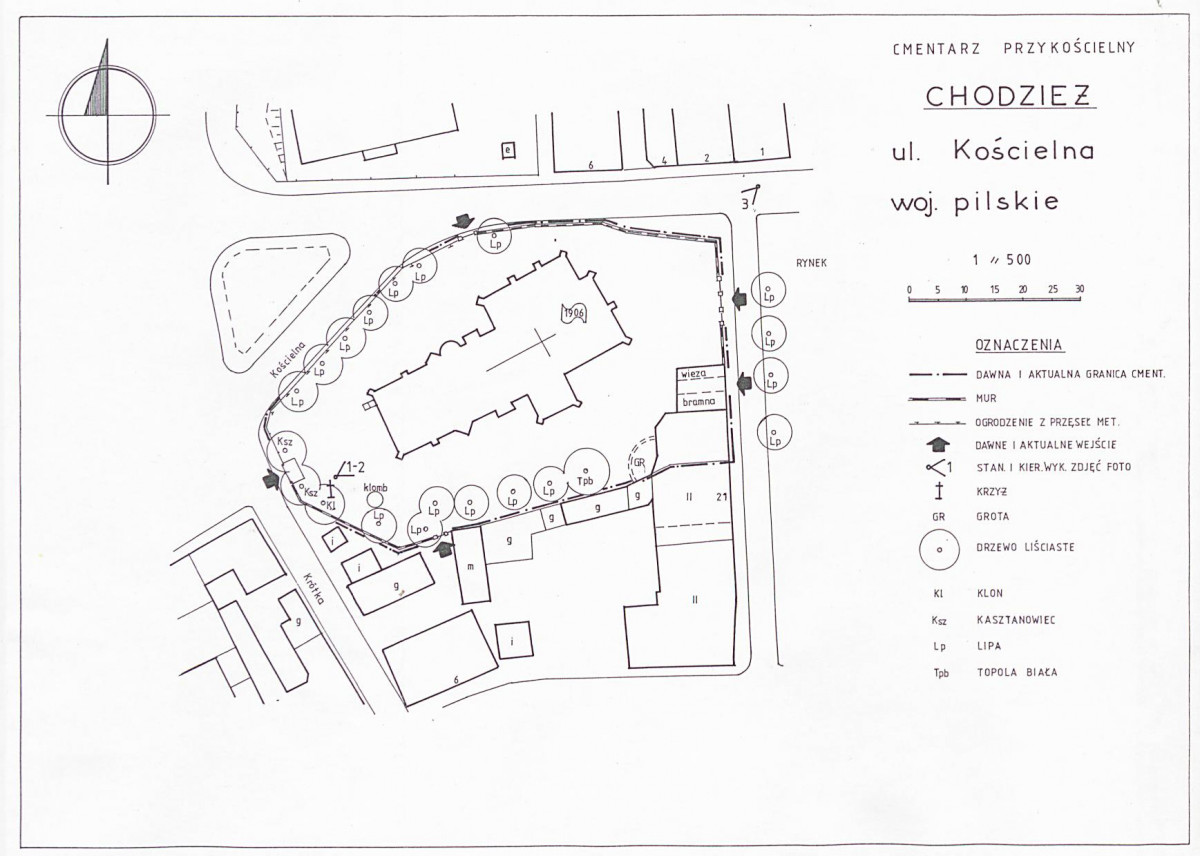 CMENTARZ PRZYKOŚCIELNY
CHODZIEŻ
ul. Kościelna
woj. pilskie
1 // 500
0 5 10 15 20 25 30
OZNACZENIA
DAWNA I AKTUALNA GRANICA CMENT.
MUR
OGRODZENIE Z PRZĘSEŁ MET.
DAWNE I AKTUALNE WEJŚCIE
1 STAN. I KIER. WYK. ZDJĘĆ FOTO
KRZYŻ
GR GROTA
DRZEWO LIŚCIASTE
Kl KLON
Ksz KASZTANOWIEC
Lp LIPA
Tpb TOPOLA BIAŁA
e
6
4
2
1
3
RYNEK
Lp
Lp
Lp
Lp
Lp
Lp
Lp
Lp
Lp
Lp
Lp
1906
Kościelna
wieża
bramna
Ksz
Ksz
Kl
1-2
klomb
Lp
Lp
Lp
Lp
Lp
Lp
Tpb
GR
g
g
g
g
m
II 21
II
i
i
g
g
Krótka
6
i